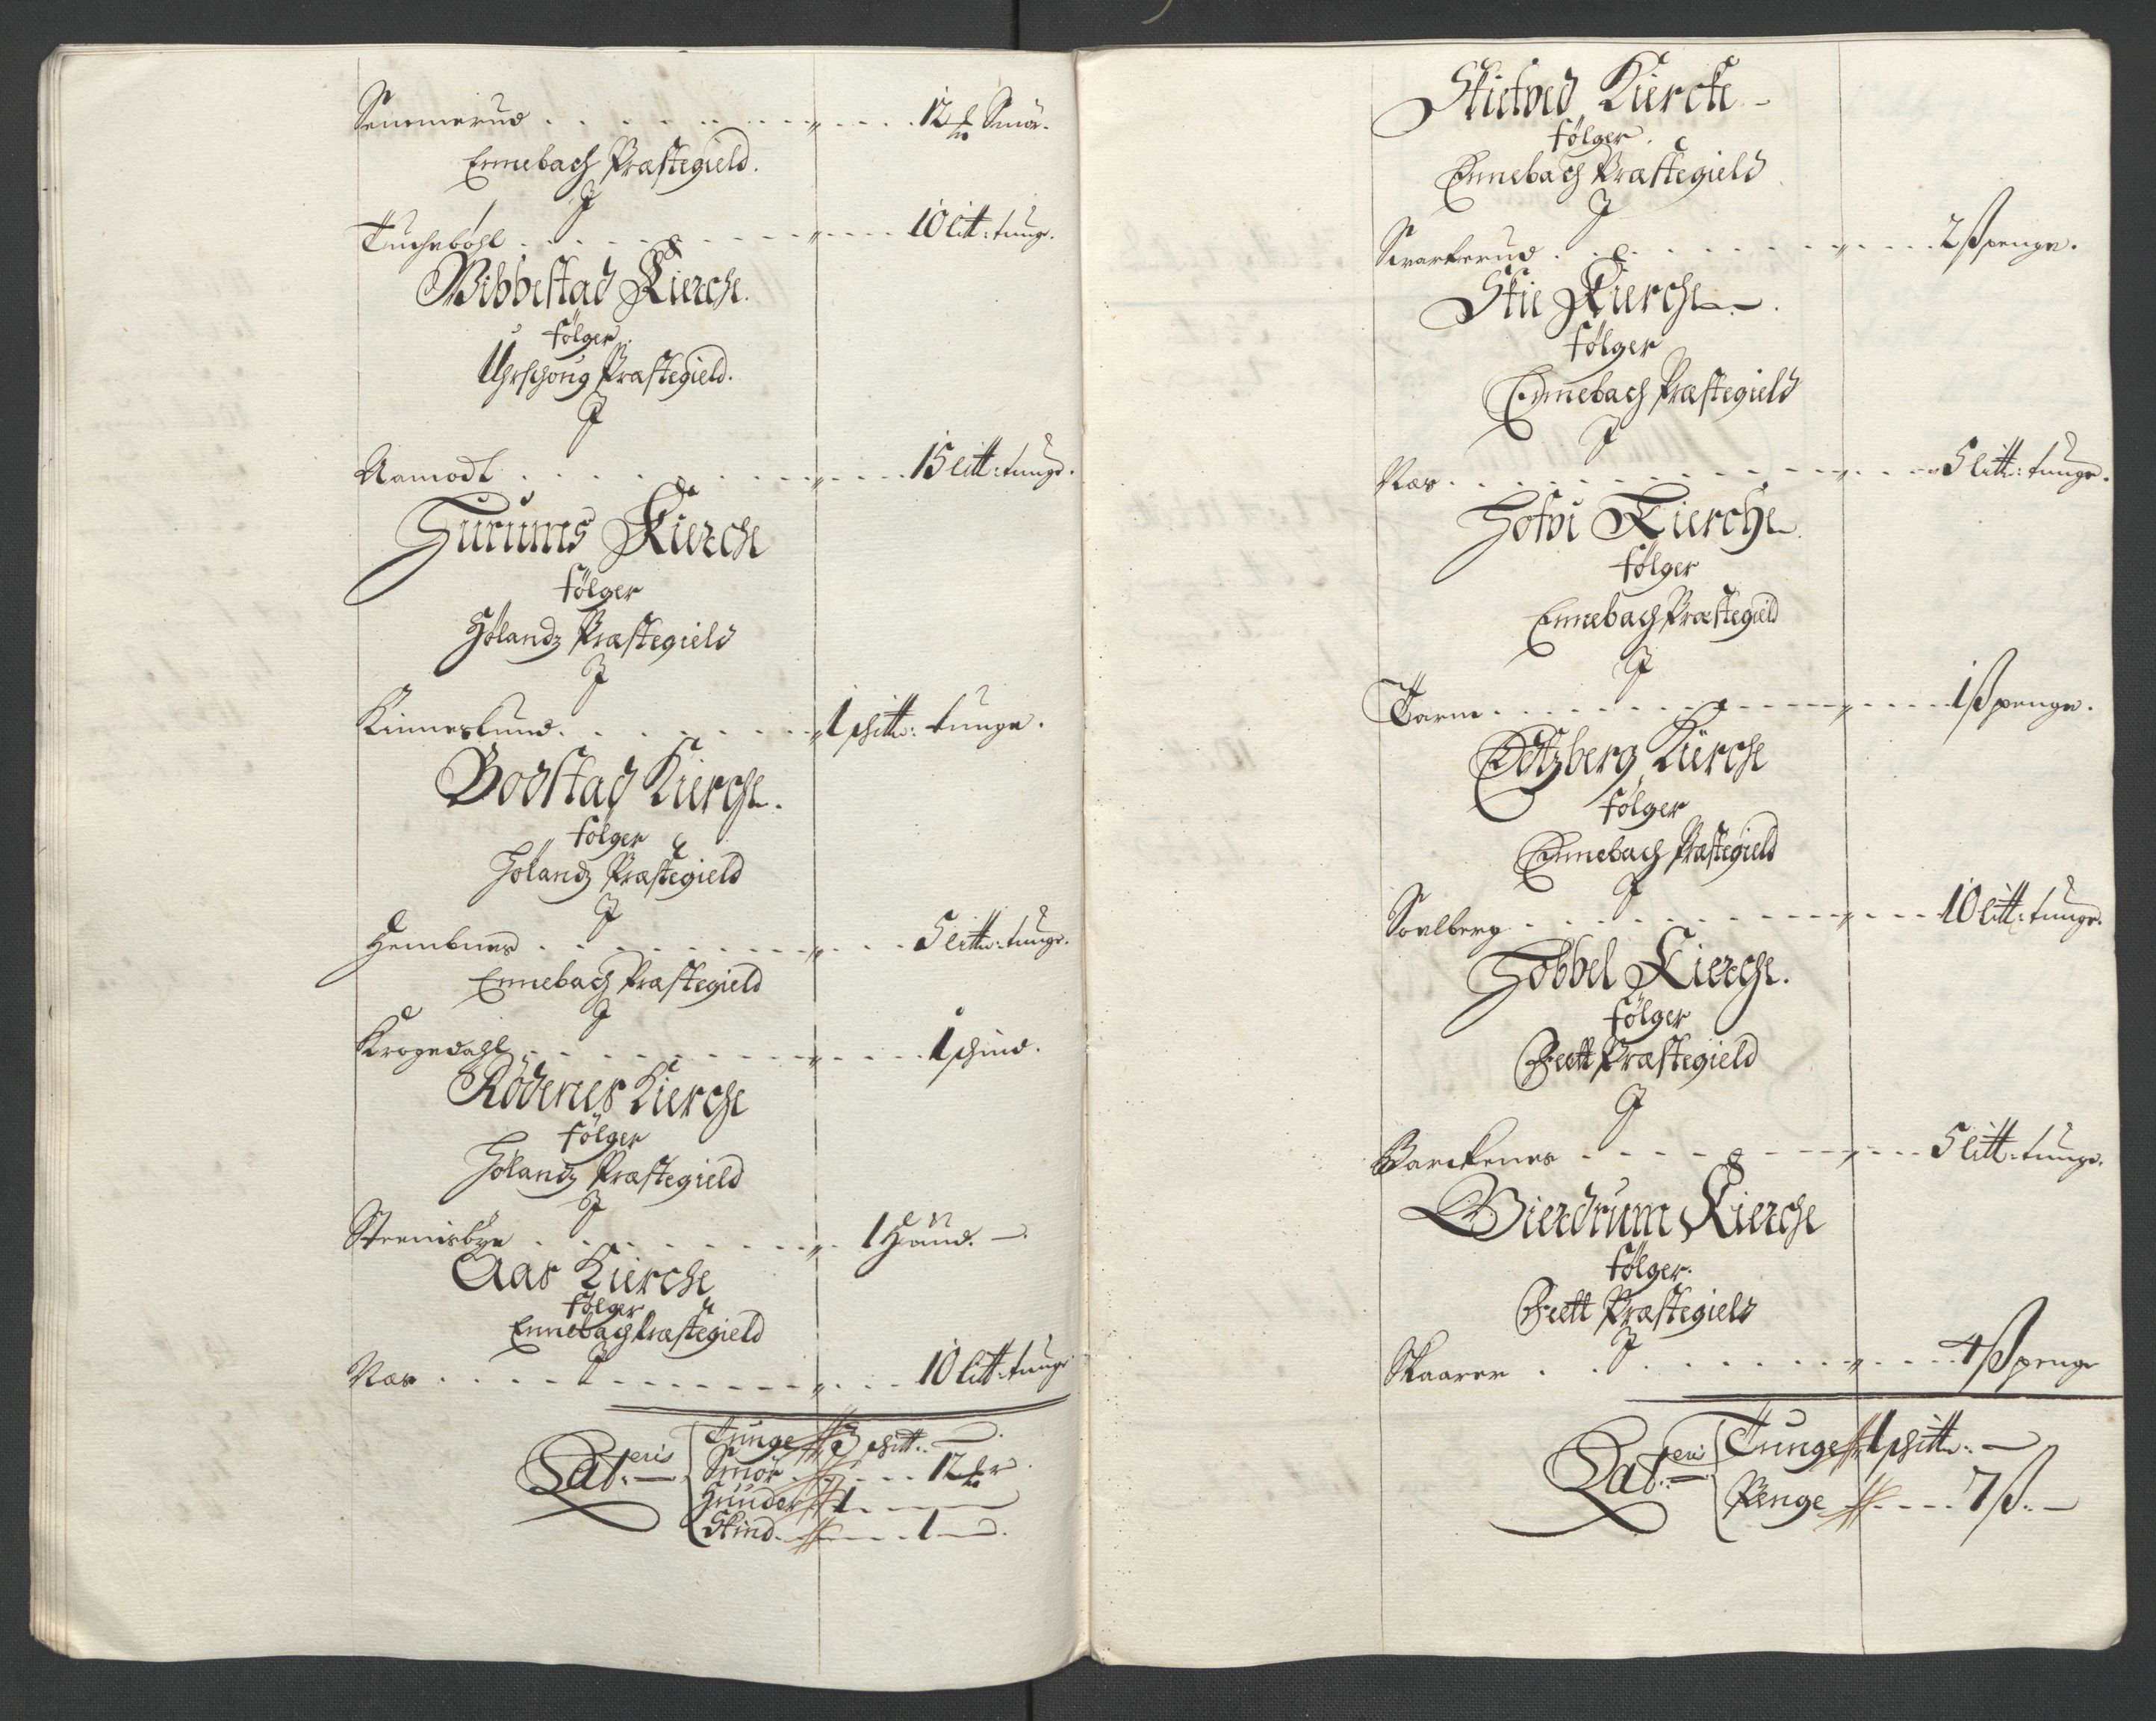 Semmerud . . . . . . . . „ . . . 12 ℔r Smör.
Ennebach Præstegield.
J
Tuchebohl . . . . . . . . „ . . . 10 litt: tunge.
Bibbestad Kierche.
følger
Uhrschoug Præstegield.
J
Aamodt . . . . . . . . „ . . . 15 litt: tunge.
Surums Kierche
følger
Hölandz Præstegield
J
Kinneslund . . . . . . . . „ 1 schitt: tunge.
Bodstad Kierche.
følger
Hölandz Præstegield
J
Hembnes . . . . . . . . „ . . . 5 litt: tunge.
Ennebach Præstegield
J
Krogedahl . . . . . . . . „ . . . 1 schind.
Rödenes Kierche
følger
Hölandz Præstegield
J
Streinsbye . . . . . . . . „ . 1 Hund. —
Aas Kierche
følger
Ennebach Præstegield
J
Næs . . . . . . . . „ . . . 10 litt: tunge
Lat:eris
Tunge 3 schitt. —
Smör . . . . 12 ℔r
Hunder 1 . —
Skind . . . . 1 —
Skietved Kiercke
følger.
Ennebach Præstegield
J
Svarterud . . . . . . . . „ . . . 2 ß penge.
Skie Kierche
følger
Ennebach Præstegield
J
Næs . . . . . . . . „ . . . 5 litt: tunge.
Hofvi Kierche
følger
Ennebach Præstegield
J
Tarm . . . . . . . . „ . . . 1 ß penge.
Edtzberg Kierche
følger
Ennebach Præstegield
J
Soelberg . . . . . . . . „ . . . 10 litt: tunge.
Hobbel Kierche.
følger
Feett Præstegield
J
Barckenes . . . . . . . . „ . . . 5 litt: tunge.
Bierdrum Kierche
følger.
Feett Præstegield
J
Skaarer . . . . . . . . „ . . . 4 ß penge
Lat:eris
Tunge 1 schitt. —
Penge . . . . 7 ß. —